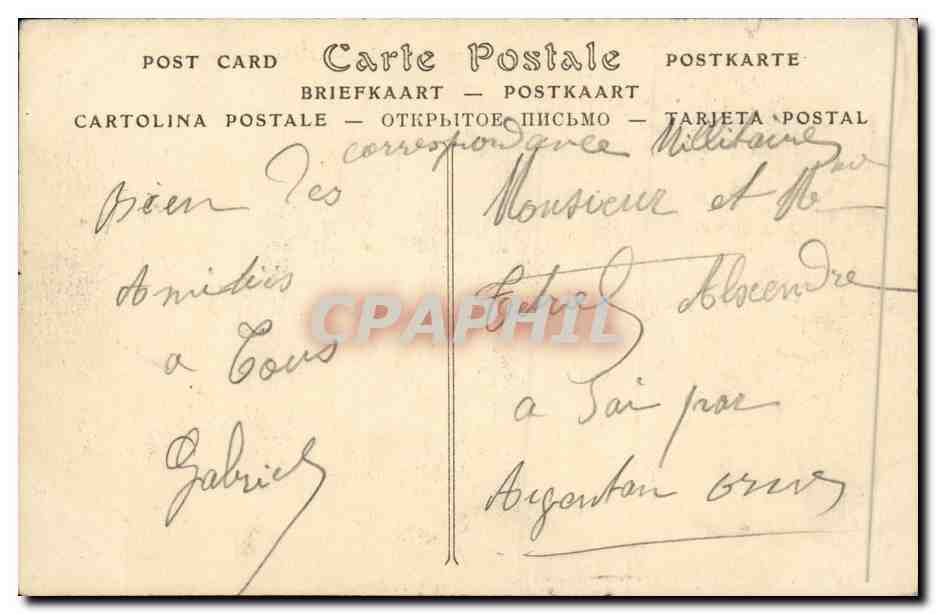 POST CARD Carte Postale POSTKARTE
BRIEFKAART — POSTKAART
CARTOLINA POSTALE — ОТКРЫТОЕ ПИСЬМО — TARJETA POSTAL
correspondance Millitaire
Bien des
Amitiis
a Tous
Gabriel
Monsieur et Mme
Alexendre
a Sai par
Argentan Orne
CPAPHIL